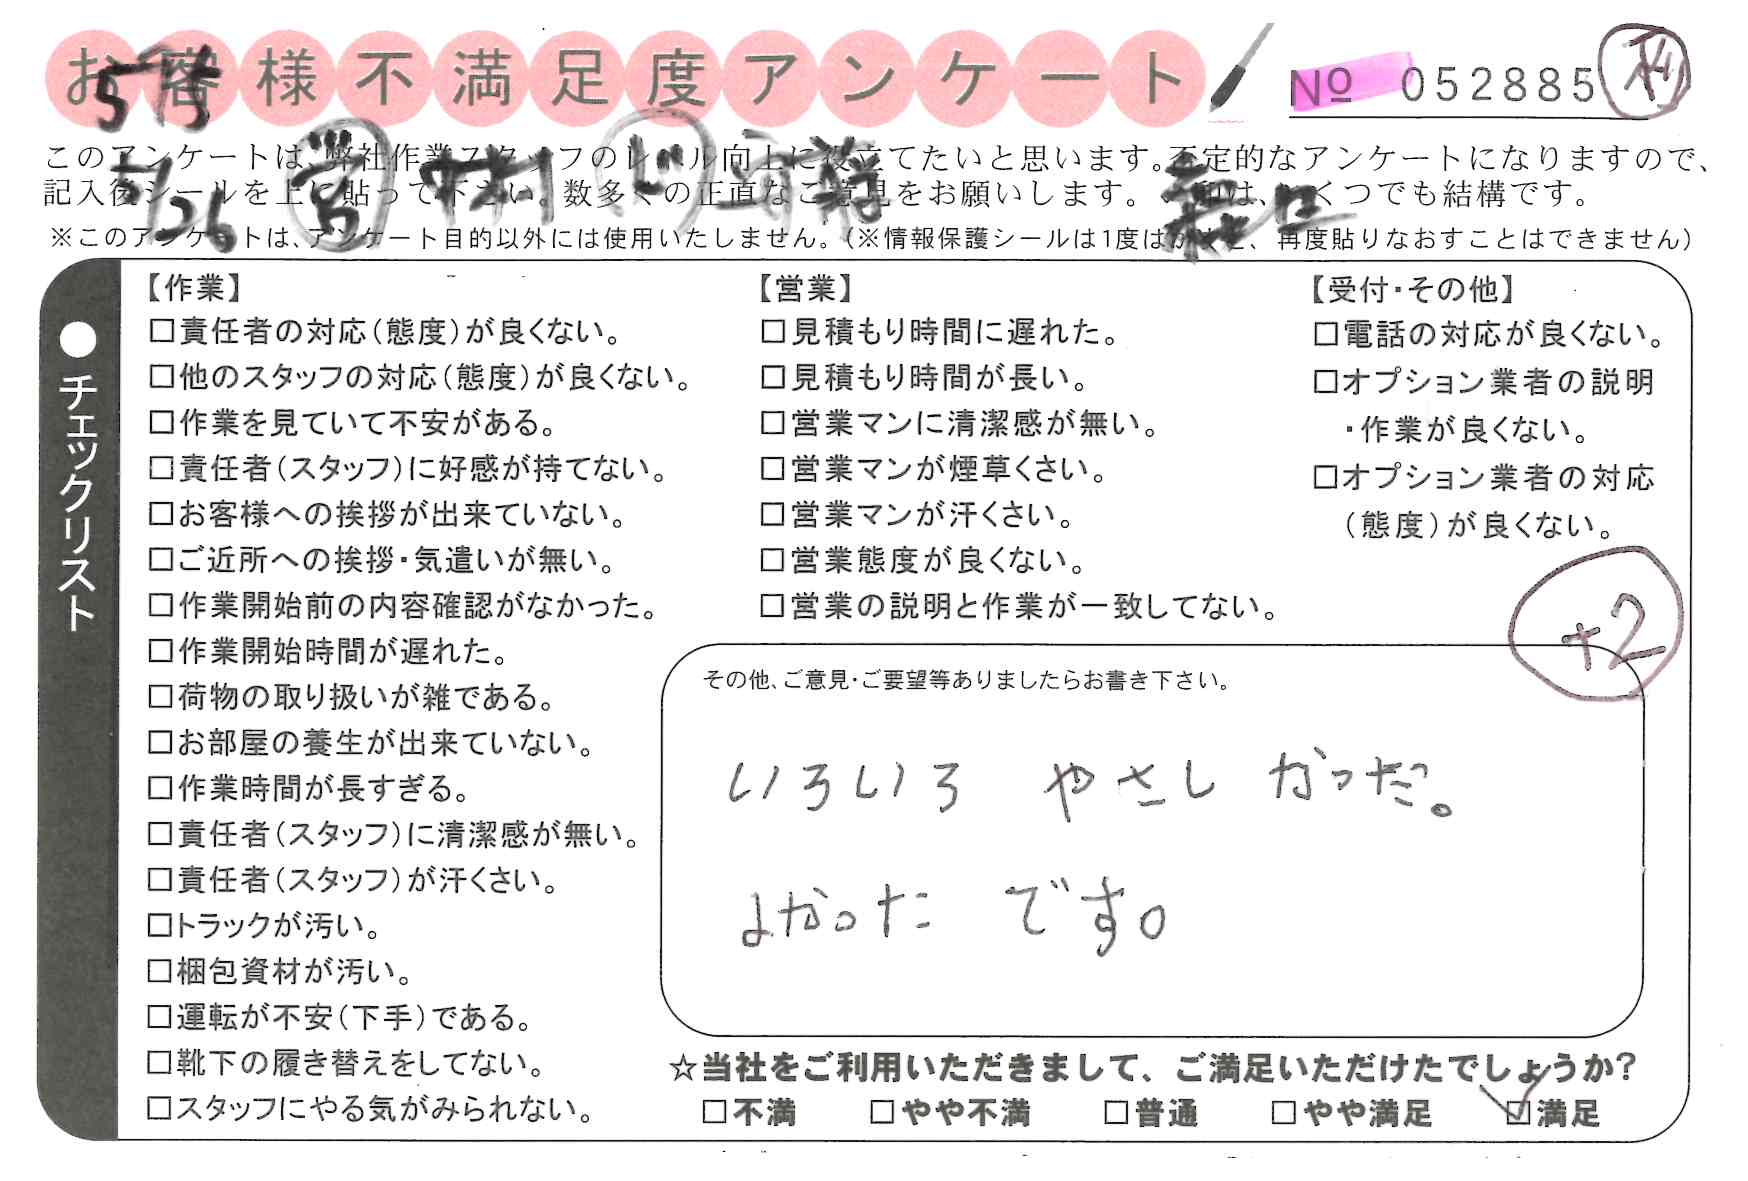 お客様不満足度アンケート
№ 052885
このアンケートは、弊社作業スタッフのレベル向上に役立てたいと思います。否定的なアンケートになりますので、
記入後シールを上に貼って下さい。数多くの正直なご意見をお願いします。 ✓印は、いくつでも結構です。
※このアンケートは、アンケート目的以外には使用いたしません。(※情報保護シールは1度はがすと、再度貼りなおすことはできません)
5/26
●チェックリスト
【作業】
□責任者の対応(態度)が良くない。
□他のスタッフの対応(態度)が良くない。
□作業を見ていて不安がある。
□責任者(スタッフ)に好感が持てない。
□お客様への挨拶が出来ていない。
□ご近所への挨拶・気遣いが無い。
□作業開始前の内容確認がなかった。
□作業開始時間が遅れた。
□荷物の取り扱いが雑である。
□お部屋の養生が出来ていない。
□作業時間が長すぎる。
□責任者(スタッフ)に清潔感が無い。
□責任者(スタッフ)が汗くさい。
□トラックが汚い。
□梱包資材が汚い。
□運転が不安(下手)である。
□靴下の履き替えをしてない。
□スタッフにやる気がみられない。
【営業】
□見積もり時間に遅れた。
□見積もり時間が長い。
□営業マンに清潔感が無い。
□営業マンが煙草くさい。
□営業マンが汗くさい。
□営業態度が良くない。
□営業の説明と作業が一致してない。
【受付・その他】
□電話の対応が良くない。
□オプション業者の説明
・作業が良くない。
□オプション業者の対応
(態度)が良くない。
+2
その他、ご意見・ご要望等ありましたらお書き下さい。
いろいろ やさし かった。
よかった です。
☆当社をご利用いただきまして、ご満足いただけたでしょうか?
□不満 □やや不満 □普通 □やや満足 ☑満足